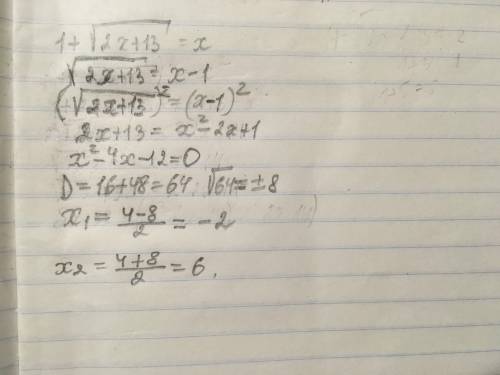 1+√2x+13 = x
√2x+13 = x-1
(+√2x+13)² = (x-1)²
2x+13 = x²-2x+1
x²-4x-12=0
D=16+48=64 √64=±8
x₁ = (4-8)/2 = -2
x₂ = (4+8)/2 = 6.